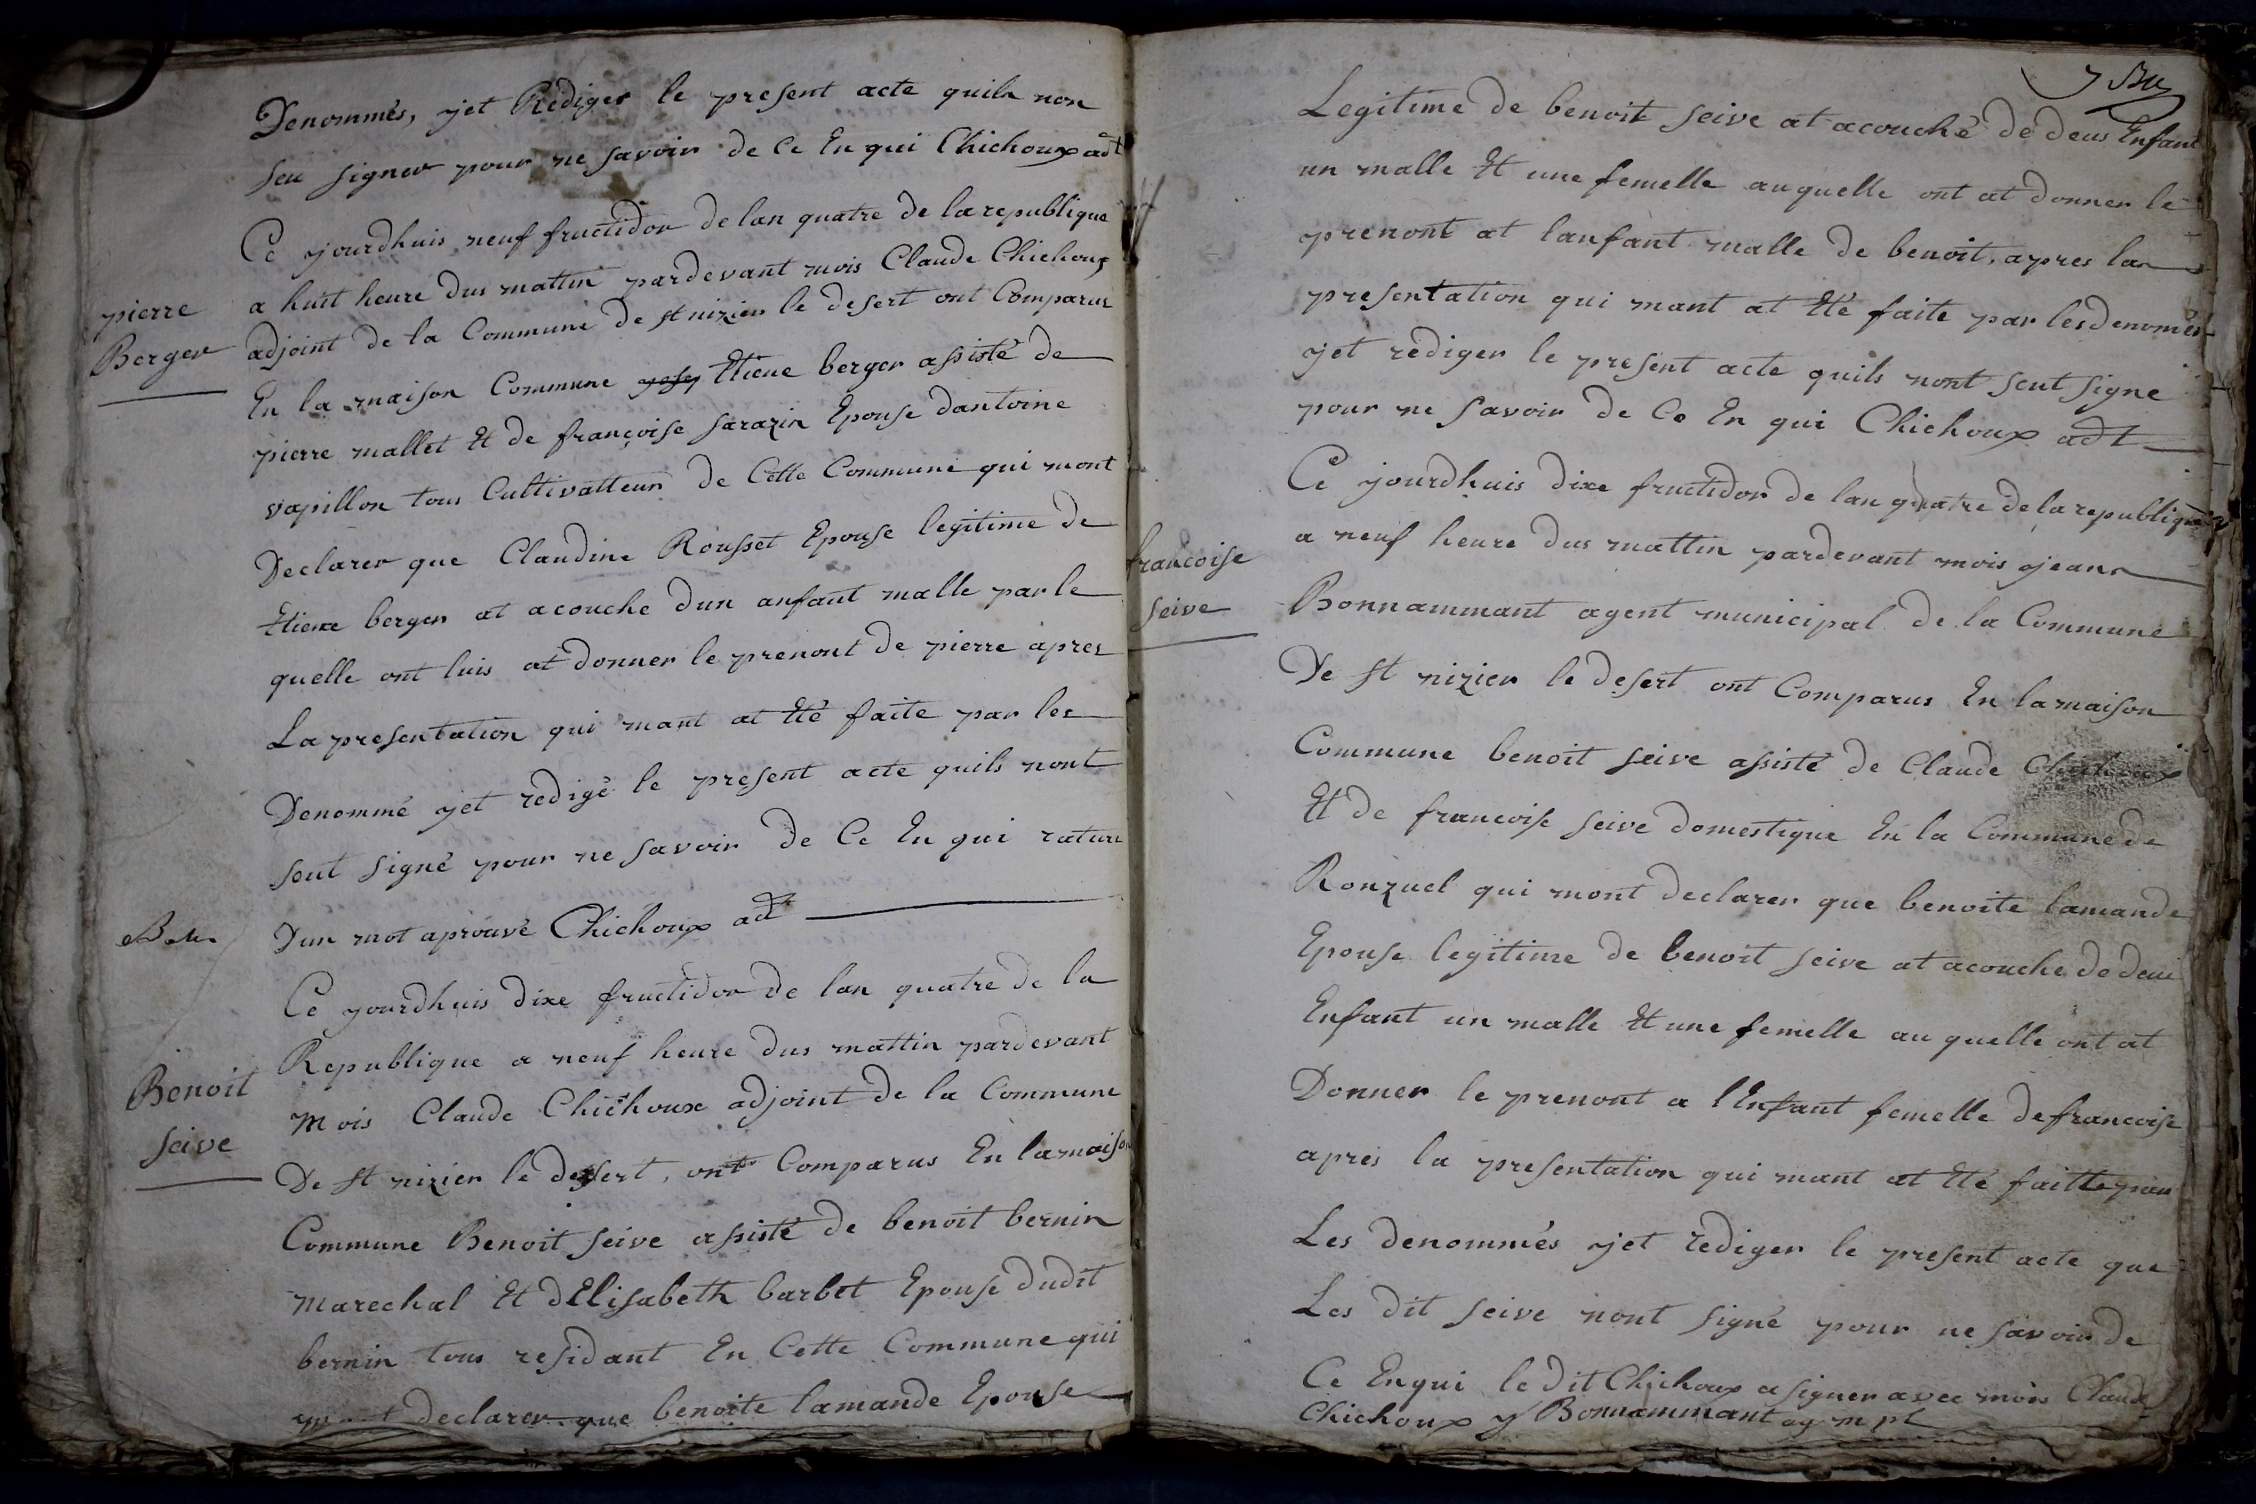 Denommés, yet Rédiger le present acte quils non
seu signer pour ne savoir de Ce En qui Chichoux adt
Ce jourdhuis neuf fructidor de lan quatre de la republique
pierre
Berger
a huit heure dus mattin pardevant mois Claude Chichoux
adjoint de la Commune de st nizier le desert ont Comparus
En la maison Commune Etiene berger assisté de
pierre mallet Et de françoise sarazin Epouse dantoine
vapillon tous Cultivatteur de Cette Commune qui mont
Declarer que Claudine Rousset Epouse legitime de
Etiene berger at acouche dun anfant malle par le
quelle ont luis at donner le prenont de pierre apres
La presentation qui mant at Eté faite par les
Denommé yet redigé le present acte quils nont
seut signé pour ne savoir de Ce En qui rature
Dun mot aprouvé Chichoux adt
Ce yourdhuis dixe fructidor de lan quatre de la
Republique a neuf heure dus mattin pardevant
Benoit
seive
Mois Claude Chichoux adjoint de la Commune
De st nizier le desert, ont Comparus En lamaison
Commune Benoit seive assisté de benoit bernin
marechal Et dElisabeth barbet Epouse dudit
bernin tous residant En Cette Commune qui
mont declarer que benoite lamande Epouse
Legitime de benoit seive at acouché de deus Enfant
un malle Et une femelle auquelle ont at donner le
prenont at lanfant malle de benoit, apres la
presentation qui mant at Eté faite par lesdenomés
yet rediger le present acte quils nont seut signe
pour ne savoir de Ce En qui Chichoux adt
Ce yourdhuis dixe fructidor de lan quatre de la republique
a neuf heure dus mattin pardevant mois jean
francoise
seive
Bonnammant agent municipal de la Commune
De st nizier le desert ont Comparus En lamaison
Commune benoit seive assisté de Claude Chichoux
Et de francoise seive domestique En la Commune de
Ronzuel qui mont declarer que benoite lamande
Epouse legitime de benoit seive at acouche de deui
Enfant un malle Et une femelle au quelle ont at
Donner le prenont a lEnfant femelle de francoise
apres la presentation qui mant at Eté faitte par
Les denommés yet rediger le present acte que
Les dit seive nont signé pour ne savoir de
Ce Enqui le dit Chichoux a signer avec mois Claude
Chichoux y Bonnammant ag mpl